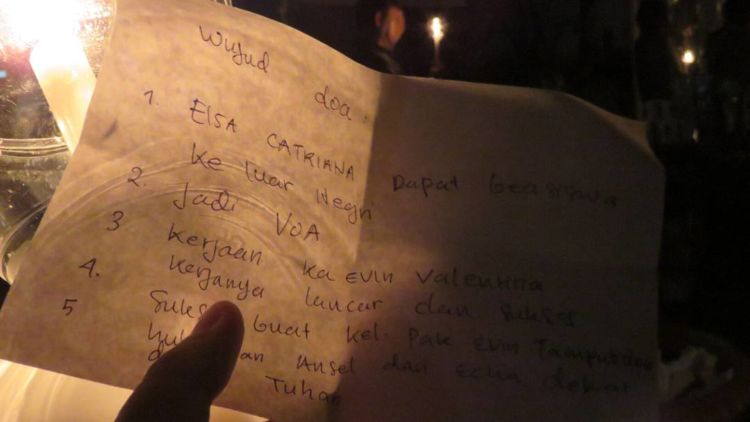 Wujud doa :
1. Elsa CATRIANA Dapat beasiswa
Ke luar Negri
2. Jadi VOA
3 Kerjaan Ka Evin Valentina
4. Kerjanya lancar dan sukses
5 Sukses buat kel. Pak Evin Tampubolon
Ansel dan Echa
Tuhan